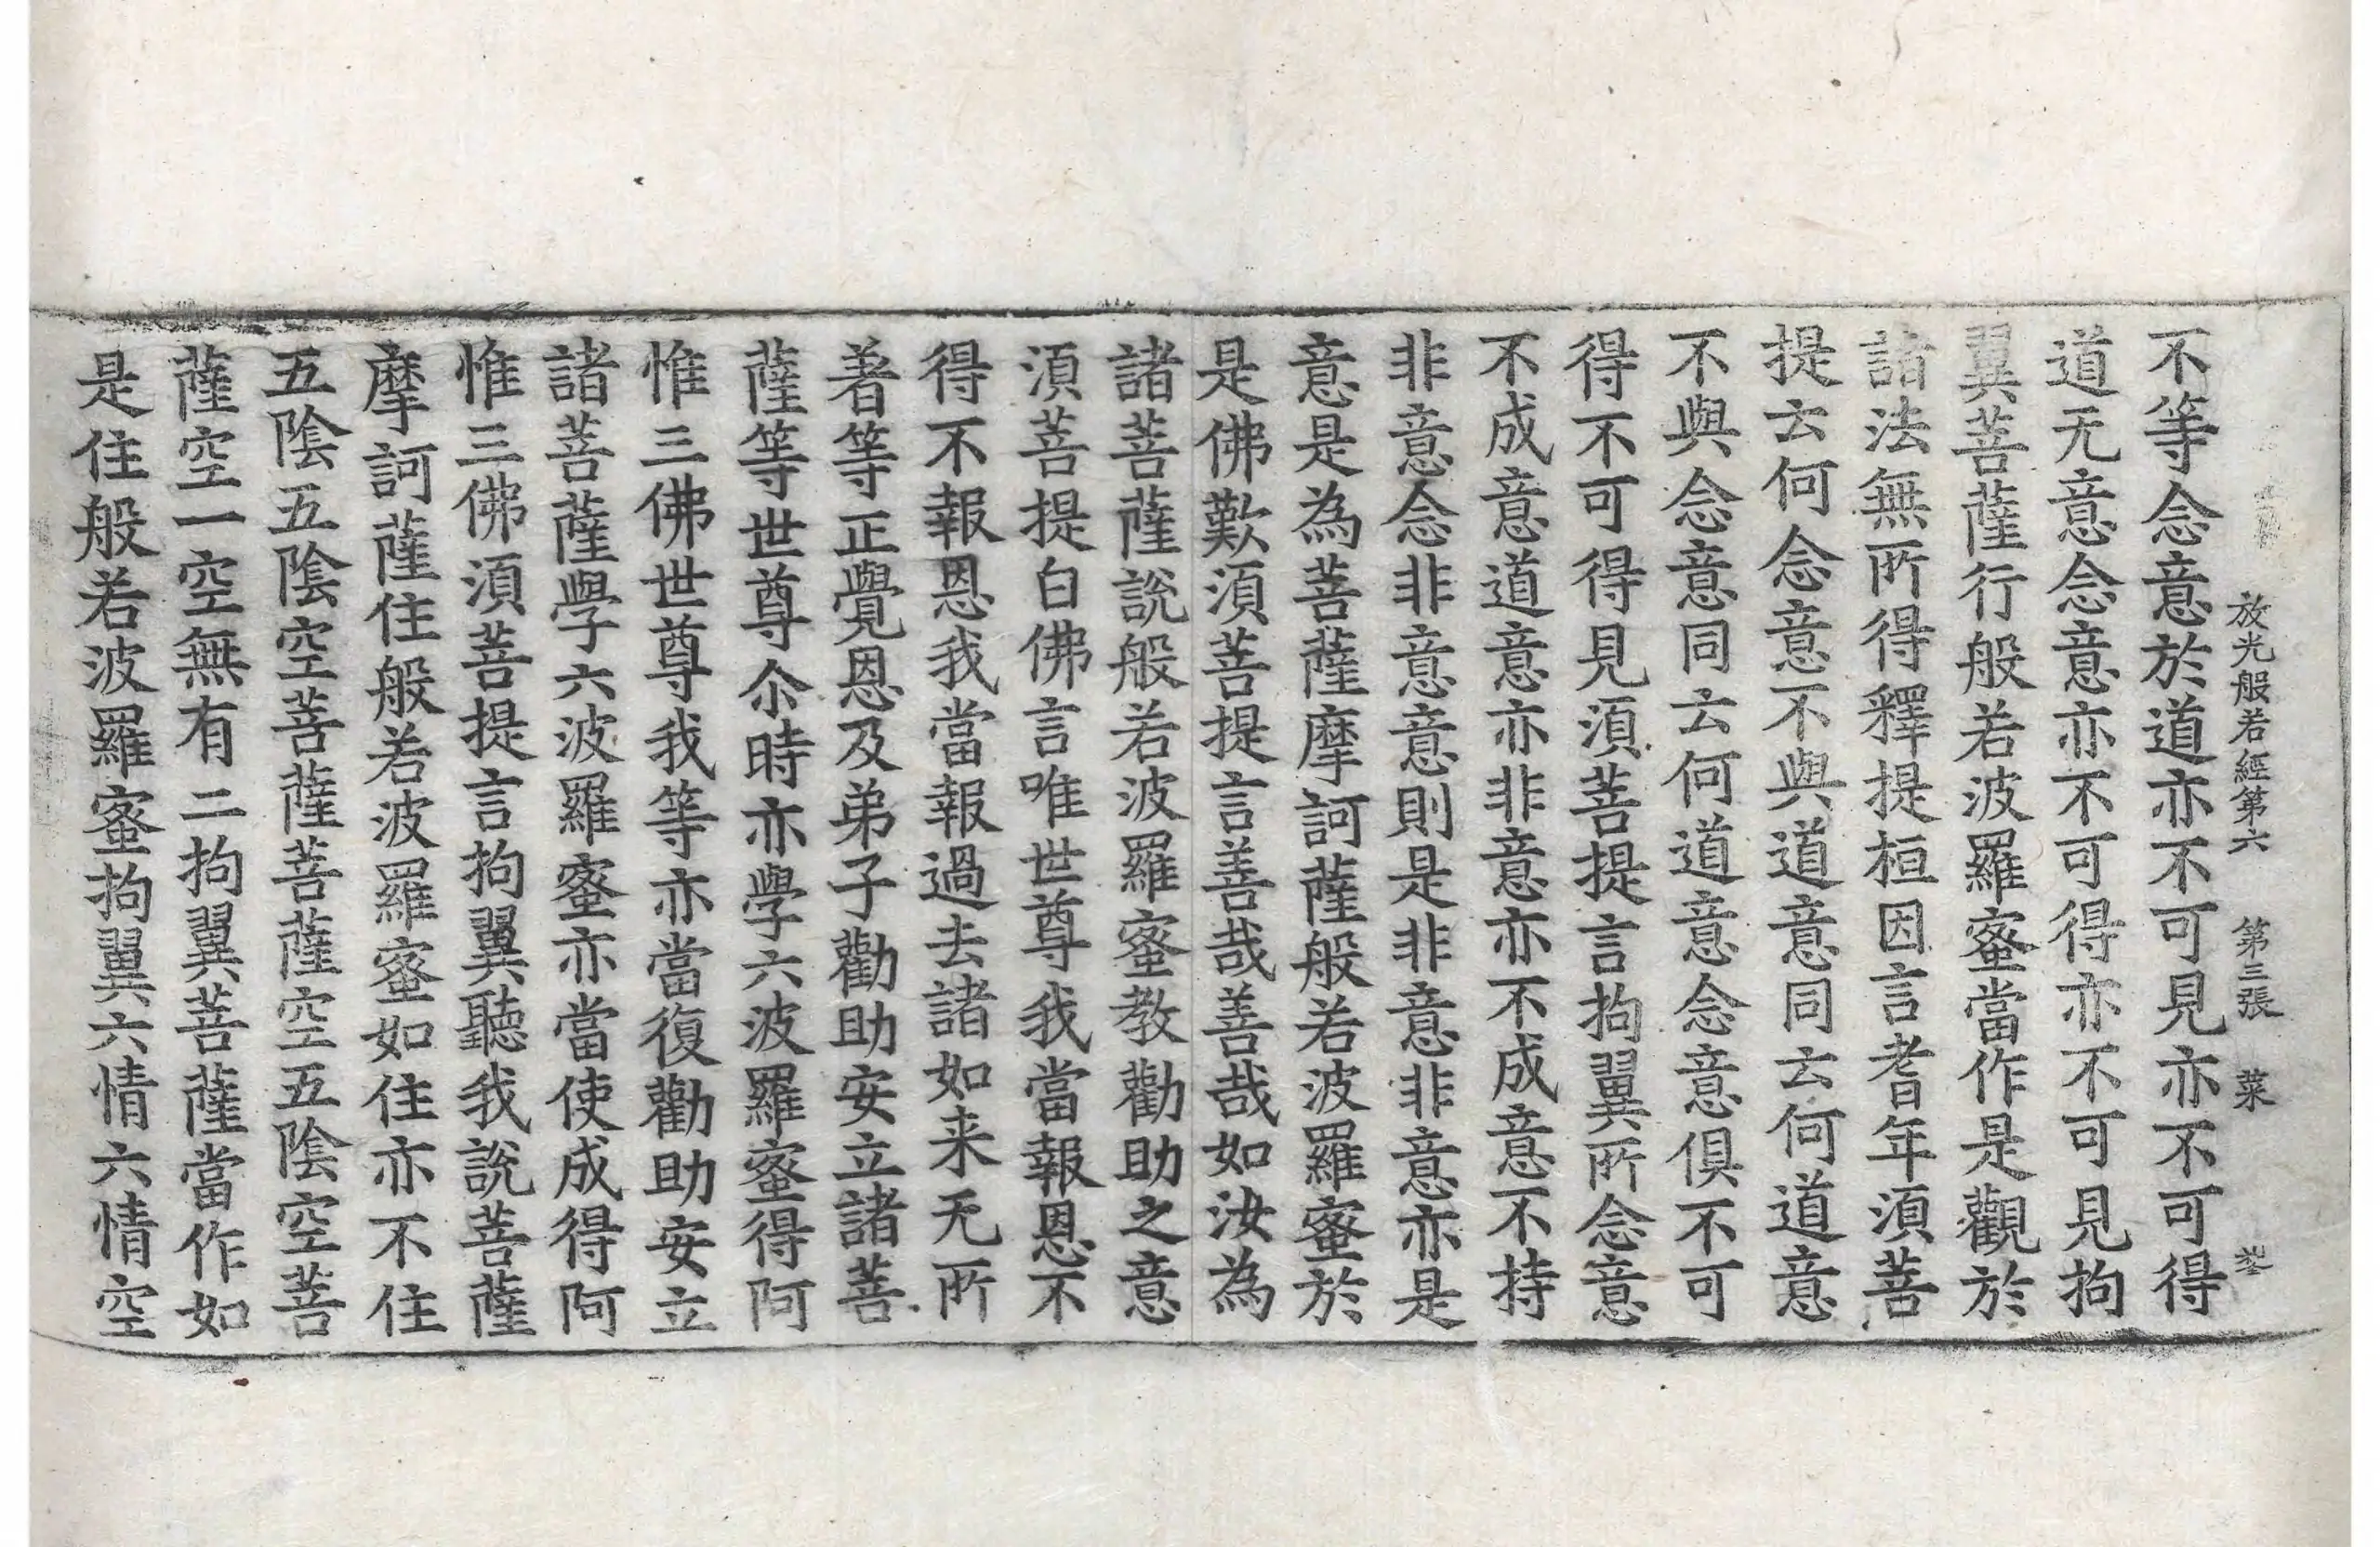 放光般若經第六　第三張　菜
不等念意於道亦不可見亦不可得
道无意念意亦不可得亦不可見拘
翼菩薩行般若波羅蜜當作是觀於
諸法無所得釋提桓因言耆年須菩
提云何念意不與道意同云何道意
不與念意同云何道意念意俱不可
得不可得見須菩提言拘翼所念意
不成意道意亦非意亦不成意不持
非意念非意意則是非意非意亦是
意是為菩薩摩訶薩般若波羅蜜於
是佛歎須菩提言善哉善哉如汝為
諸菩薩說般若波羅蜜教勸助之意
須菩提白佛言唯世尊我當報恩不
得不報恩我當報過去諸如来无所
著等正覺恩及弟子勸助安立諸菩
薩等世尊尒時亦學六波羅蜜得阿
惟三佛世尊我等亦當復勸助安立
諸菩薩學六波羅蜜亦當使成得阿
惟三佛須菩提言拘翼聽我說菩薩
摩訶薩住般若波羅蜜如住亦不住
五陰五陰空菩薩菩薩空五陰空菩
薩空一空無有二拘翼菩薩當作如
是住般若波羅蜜拘翼六情六情空